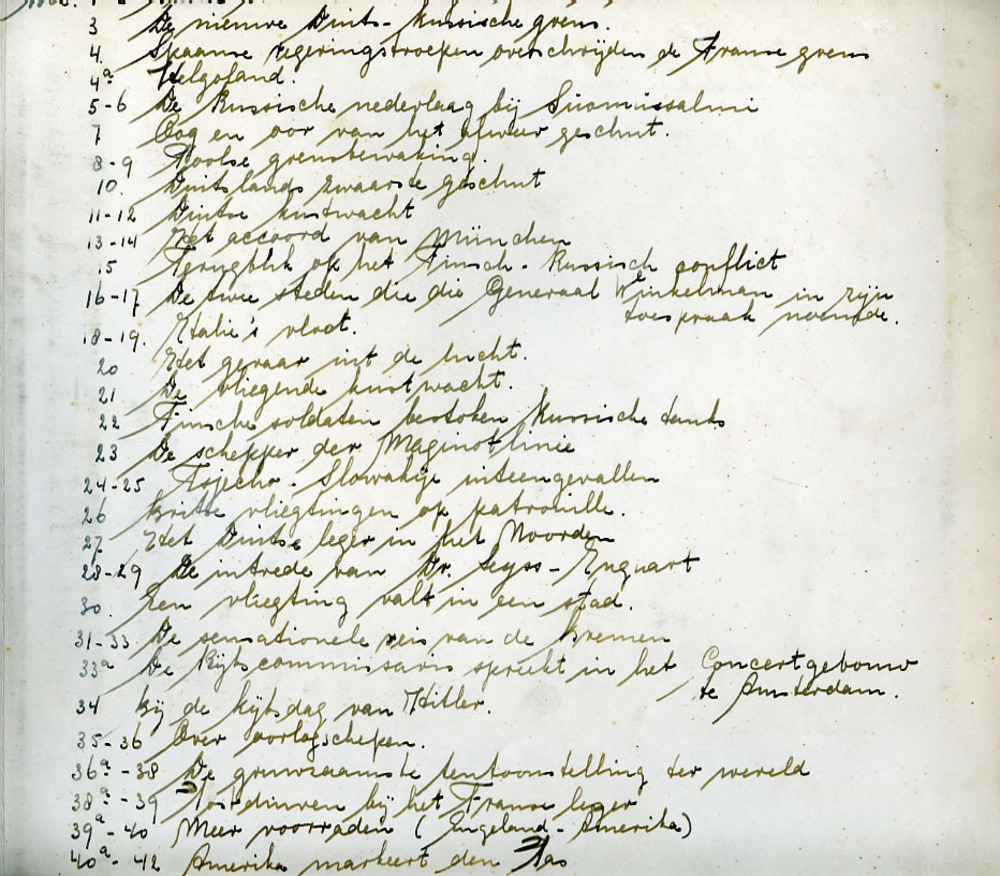 3 De nieuwe Duits-Russische grens.
4. Spaanse regeringstroepen overschrijden de Franse grens
4a Helgoland.
5-6 De Russische nederlaag bij Suomussalmi
7 Oog en oor van het afweer geschut.
8-9 Poolse grensbewaking.
10. Duitslands zwaarste geschut
11-12 Duitse kustwacht
13-14 Het accoord van München
15 Terugblik op het Finsch-Russisch conflict
16-17 De twee steden die die Generaal Winkelman in zijn
toespraak noemde.
18-19. Italie's vloot.
20 Het gevaar uit de lucht.
21 De vliegende kustwacht.
22 Finsche soldaten bestoken Russische tanks
23 De schepper der Maginotlinie
24-25 Tsjecho-Slowakije ineengevallen
26 Britse vliegtingen op patrouille.
27 Het Duitse leger in het Noorden
28-29 De intrede van Dr. Seyss-Inquart
30. Een vliegting valt in een stad.
31-33 De sensationele reis van de Bremen
33a De Rijkscommissaris spreekt in het Concertgebouw
te Amsterdam.
34 Bij de Rijksdag van Hitler.
35-36 Over oorlogschepen.
36a-38 De gruwzaamste tentoonstelling ter wereld
38a-39 Postduiven bij het Franse leger
39a-40 Meer voorraden (Engeland-Amerika)
40a-42 Amerika markeert den